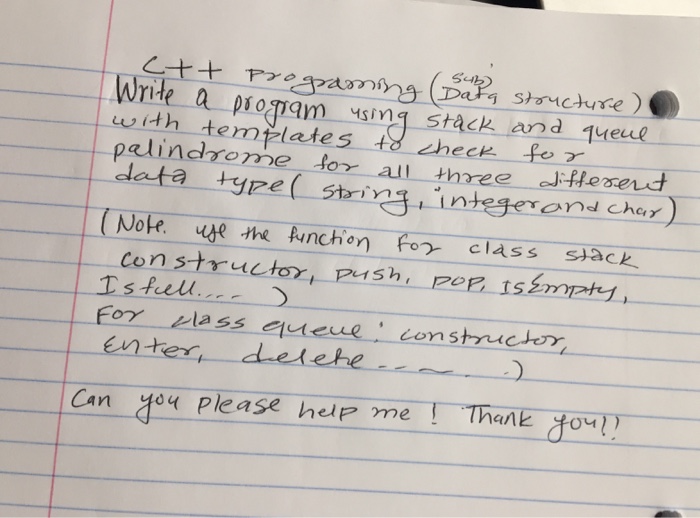 C++ Programing (Data structure)
sub
Write a program using stack and queue
with templates to check for
palindrome for all three different
data type( string, integer and char)
(Note. use the function for class stack
constructor, push, pop, IsEmpty,
Isfull.... )
For class queue: constructor,
Enter, delete -- ~ . .)
Can you please help me ! Thank you!!